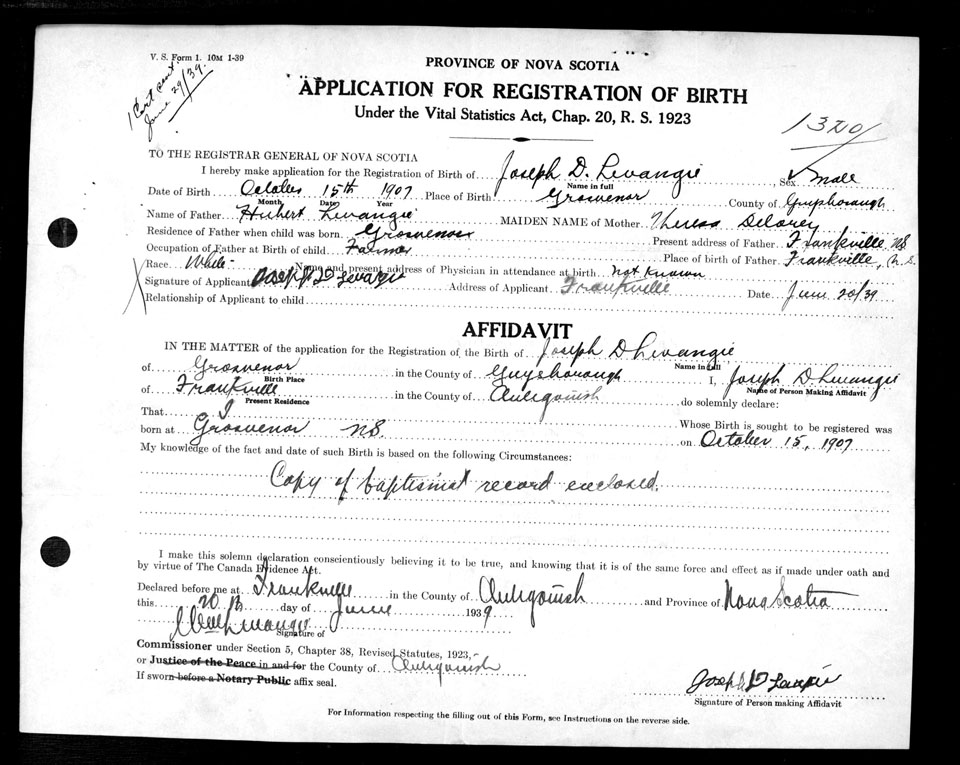 V. S. Form 1. 10M 1-39
1 Cert sent
June 29/39.
PROVINCE OF NOVA SCOTIA
APPLICATION FOR REGISTRATION OF BIRTH
Under the Vital Statistics Act, Chap. 20, R. S. 1923
1320
TO THE REGISTRAR GENERAL OF NOVA SCOTIA
I hereby make application for the Registration of Birth of Joseph D. Levangie Sex Male
Name in full
Date of Birth October 15th 1907 Place of Birth Grosvenor County of Guysborough
Month Date Year
Name of Father Hubert Levangie MAIDEN NAME of Mother Theresa Delorey
Residence of Father when child was born Grosvenor Present address of Father Frankville NS
Occupation of Father at Birth of child Farmer Place of birth of Father Frankville, N.S.
Race White Name and present address of Physician in attendance at birth not known
Signature of Applicant Joseph D Levangie Address of Applicant Frankville Date June 20/39
Relationship of Applicant to child
AFFIDAVIT
IN THE MATTER of the application for the Registration of the Birth of Joseph D Levangie
Name in full
of Grosvenor in the County of Guysborough I, Joseph D Levangie
Birth Place Name of Person Making Affidavit
of Frankville in the County of Antigonish do solemnly declare:
Present Residence
That I Whose Birth is sought to be registered was
born at Grosvenor NS. on October 15, 1907
My knowledge of the fact and date of such Birth is based on the following Circumstances:
Copy of baptismal record enclosed.
I make this solemn declaration conscientiously believing it to be true, and knowing that it is of the same force and effect as if made under oath and
by virtue of The Canada Evidence Act.
Declared before me at Frankville in the County of Antigonish and Province of Nova Scotia
this 20th day of June 1939
Signature of
Commissioner under Section 5, Chapter 38, Revised Statutes, 1923,
or Justice of the Peace in and for the County of Antigonish
If sworn before a Notary Public affix seal.
Joseph D Levangie
Signature of Person making Affidavit
For Information respecting the filling out of this Form, see Instructions on the reverse side.